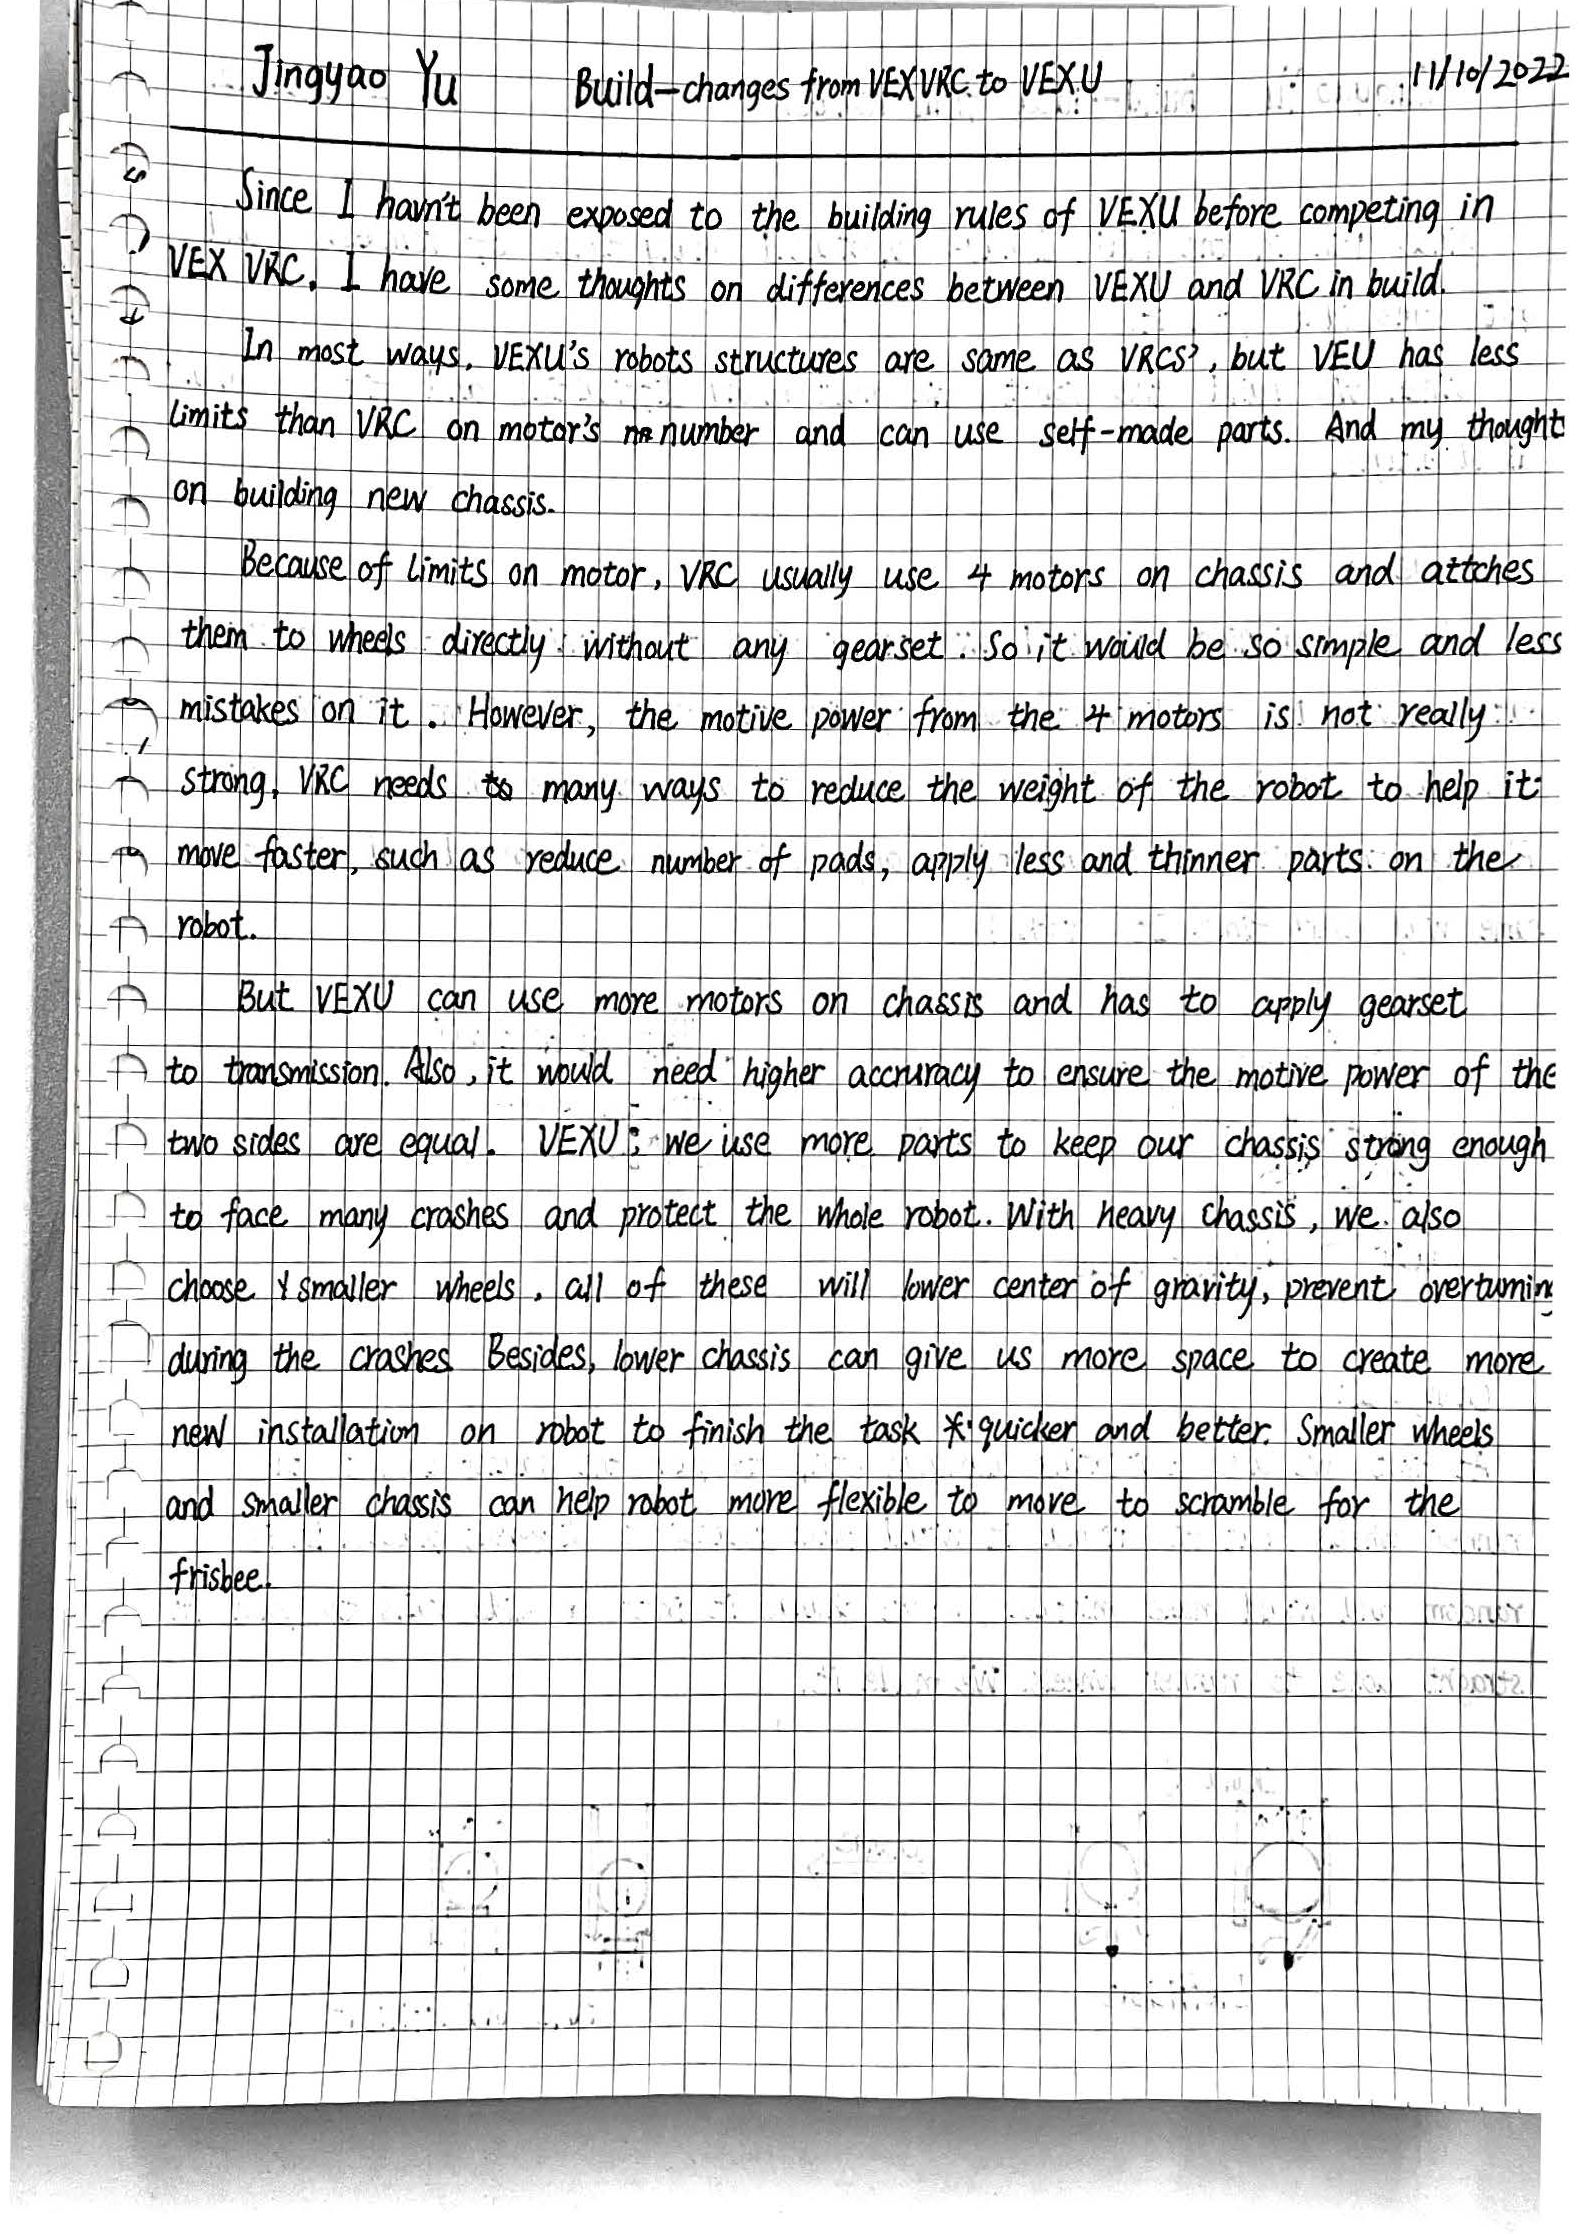 Jingyao Yu Build-changes from VEX VRC to VEXU 11/10/2022
Since I havn't been exposed to the building rules of VEXU before competing in
VEX VRC. I have some thoughts on differences between VEXU and VRC in build.
In most ways, VEXU's robots structures are same as VRCS', but VEU has less
limits than VRC on motor's number and can use self-made parts. And my thought
on building new chassis.
Because of limits on motor, VRC usually use 4 motors on chassis and attches
them to wheels directly without any gearset. So it would be so simple and less
mistakes on it. However, the motive power from the 4 motors is not really
strong, VRC needs many ways to reduce the weight of the robot to help it
move faster, such as reduce number of pads, apply less and thinner parts on the
robot.
But VEXU can use more motors on chassis and has to apply gearset
to transmission. Also, it would need higher accruracy to ensure the motive power of the
two sides are equal. VEXU: we use more parts to keep our chassis strong enough
to face many crashes and protect the whole robot. With heavy chassis, we also
choose smaller wheels, all of these will lower center of gravity, prevent overturning
during the crashes. Besides, lower chassis can give us more space to create more
new installation on robot to finish the task quicker and better. Smaller wheels
and smaller chassis can help robot more flexible to move to scramble for the
frisbee.